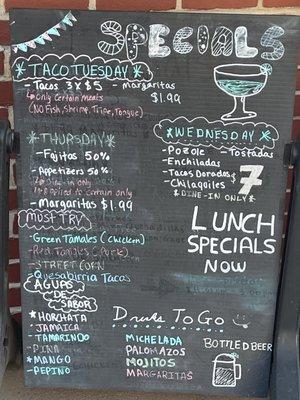 SPECIALS
*TACO TUESDAY*
- TACOS 3 x $5
- margaritas
$1.99
Only Certain meats
(No Fish, Shrimp, Tripe, Tongue)
*WEDNESDAY*
- POZOLE
- Tostadas
- Enchiladas
- Tacos Dorados
- Chilaquiles
$7
*DINE-IN ONLY*
*THURSDAY*
- Fajitas 50%
- Appetizers 50%
- margaritas $1.99
MUST TRY
- Green Tamales (Chicken)
- Red Tamales (Pork)
- STREET CORN
- Quesabirria Tacos
LUNCH
SPECIALS
NOW
AGUAS
DE
SABOR
HORCHATA
JAMAICA
TAMARINDO
- PIÑA
MANGO
- PEPINO
Drinks To Go
MICHELADA
PALOMAZOS
MOJITOS
MARGARITAS
BOTTLED BEER